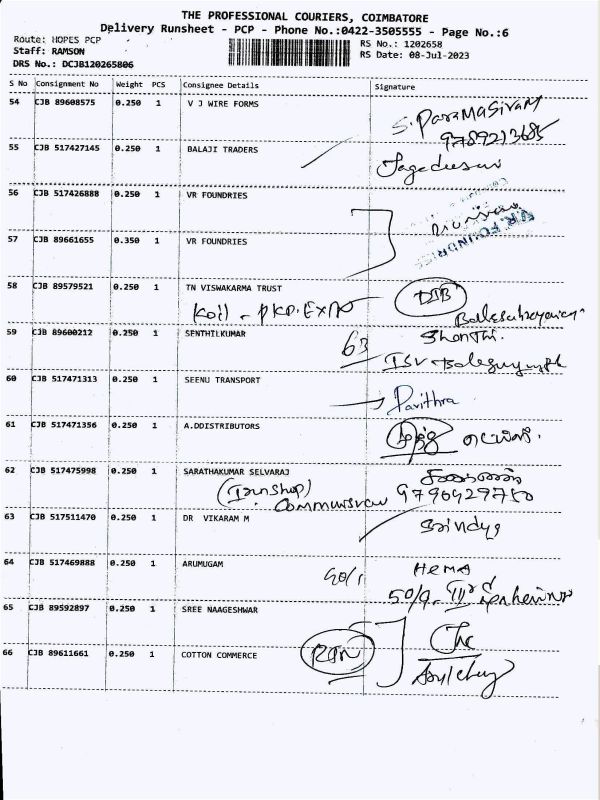 THE PROFESSIONAL COURIERS, COIMBATORE
Delivery Runsheet - PCP - Phone No.:0422-3505555 - Page No.:6
Route: HOPES PCP
Staff: RAMSON
DRS No.: DCJB120265806
RS No.: 1202658
RS Date: 08-Jul-2023
S No Consignment No Weight PCS Consignee Details Signature
54 CJB 89608575 0.250 1 V J WIRE FORMS S. PARAMASIVAM
9789213685
55 CJB 517427145 0.250 1 BALAJI TRADERS
56 CJB 517426888 0.250 1 VR FOUNDRIES
57 CJB 89661655 0.350 1 VR FOUNDRIES
V.R. FOUNDRIES
58 CJB 89579521 0.250 1 TN VISWAKARMA TRUST
Koil -
59 CJB 89600212 0.250 1 SENTHILKUMAR 63 Shanthi.
60 CJB 517471313 0.250 1 SEENU TRANSPORT Pavithra
61 CJB 517471356 0.250 1 A.DDISTRIBUTORS
62 CJB 517475998 0.250 1 SARATHAKUMAR SELVARAJ
9790429750
63 CJB 517511470 0.250 1 DR VIKARAM M
64 CJB 517469888 0.250 1 ARUMUGAM 50/1 HEMA
50/9-
65 CJB 89592897 0.250 1 SREE NAAGESHWAR
66 CJB 89611661 0.250 1 COTTON COMMERCE